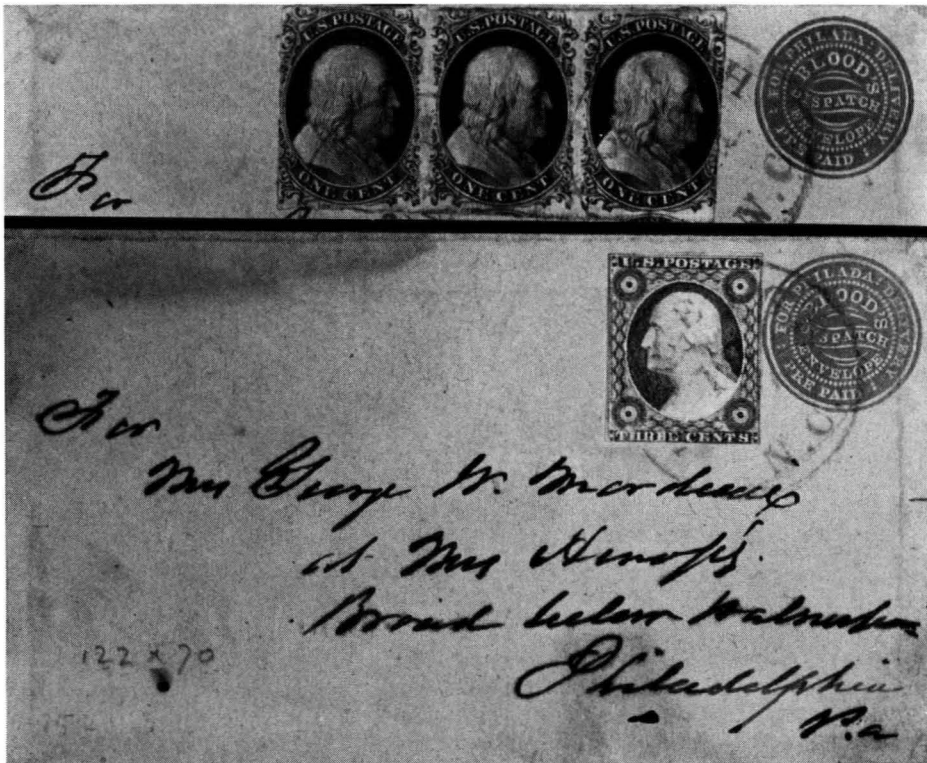 U.S. POSTAGE U.S. POSTAGE U.S. POSTAGE
ONE CENT ONE CENT ONE CENT
H
N.C.
FOR PHILADA: DELIVERY
BLOOD'S
DESPATCH
ENVELOPE
PRE PAID
For
U.S. POSTAGE
THREE CENTS
N.C.
FOR PHILADA: DELIVERY
BLOOD'S
DESPATCH
ENVELOPE
PRE PAID
For
Mrs George W. Mordecai
at Mrs
Broad below Walnut
122 x 70
Philadelphia
Pa